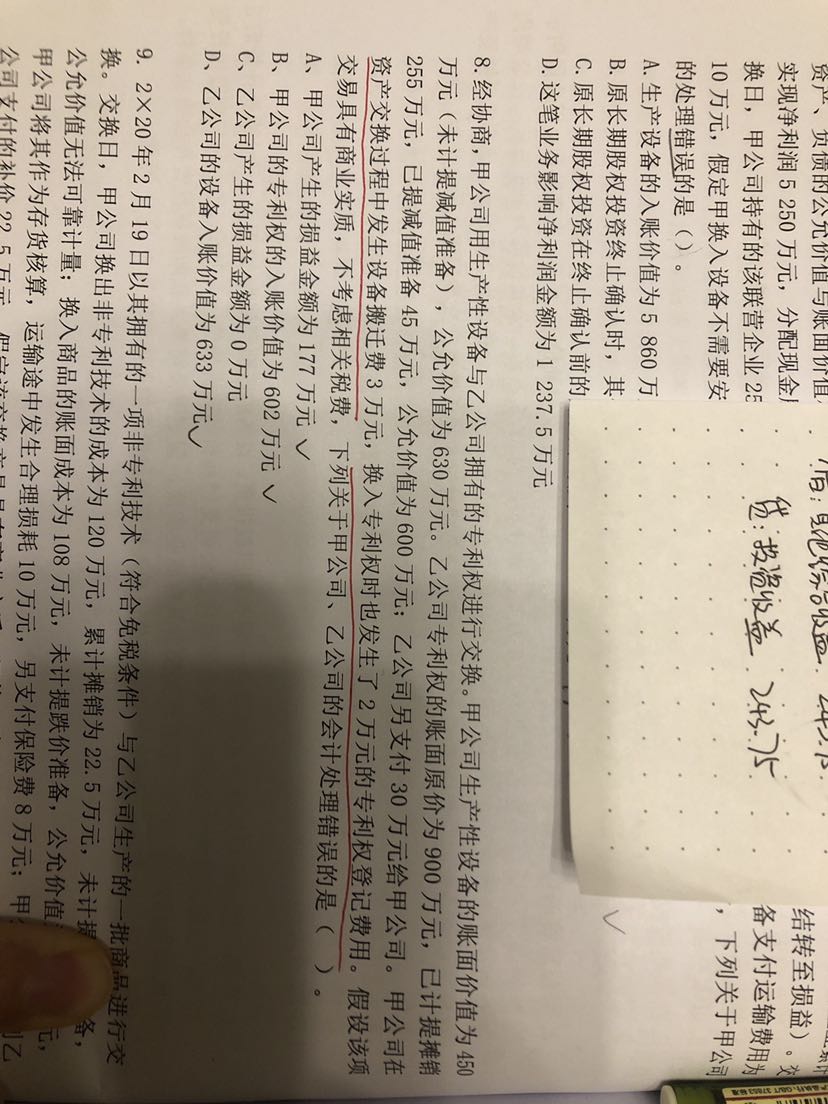 资产、负债的公允价值与账面价值
实现净利润 5 250 万元，分配现金
换日，甲公司持有的该联营企业 25
10 万元，假定甲换入设备不需要安
的处理错误的是（）。
A. 生产设备的入账价值为 5 860 万
B. 原长期股权投资终止确认时，其
C. 原长期股权投资在终止确认前的
D. 这笔业务影响净利润金额为 1 237.5 万元
贷：投资收益 243.75
结转至损益）。交
备支付运输费用为
，下列关于甲公司
8. 经协商，甲公司用生产性设备与乙公司拥有的专利权进行交换。甲公司生产性设备的账面价值为 450
万元（未计提减值准备），公允价值为 630 万元。乙公司专利权的账面原价为 900 万元，已计提摊销
255 万元，已提减值准备 45 万元，公允价值为 600 万元；乙公司另支付 30 万元给甲公司。甲公司在
资产交换过程中发生设备搬迁费 3 万元，换入专利权时也发生了 2 万元的专利权登记费用。假设该项
交易具有商业实质，不考虑相关税费，下列关于甲公司、乙公司的会计处理错误的是（ ）。
A、甲公司产生的损益金额为 177 万元 ✓
B、甲公司的专利权的入账价值为 602 万元 ✓
C、乙公司产生的损益金额为 0 万元
D、乙公司的设备入账价值为 633 万元 ✓
9. 2×20 年 2 月 19 日以其拥有的一项非专利技术（符合免税条件）与乙公司生产的一批商品进行交
换。交换日，甲公司换出非专利技术的成本为 120 万元，累计摊销为 22.5 万元，未计提
备，
公允价值无法可靠计量；换入商品的账面成本为 108 万元，未计提跌价准备，公允价值
元，
甲公司将其作为存货核算，运输途中发生合理损耗 10 万元，另支付保险费 8 万元；甲
公司支付的补价 22.5 万元